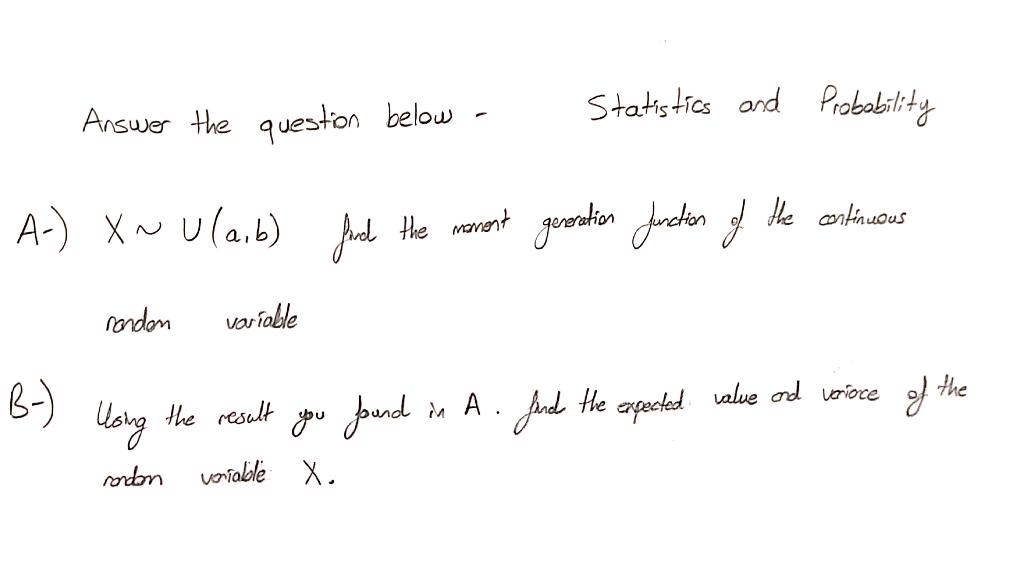 Answer the question below - Statistics and Probability
A-) X ~ U(a,b) find the moment generation function of the continuous
random variable
B-) Using the result you found in A. find the expected value and varioce of the
random variable X.